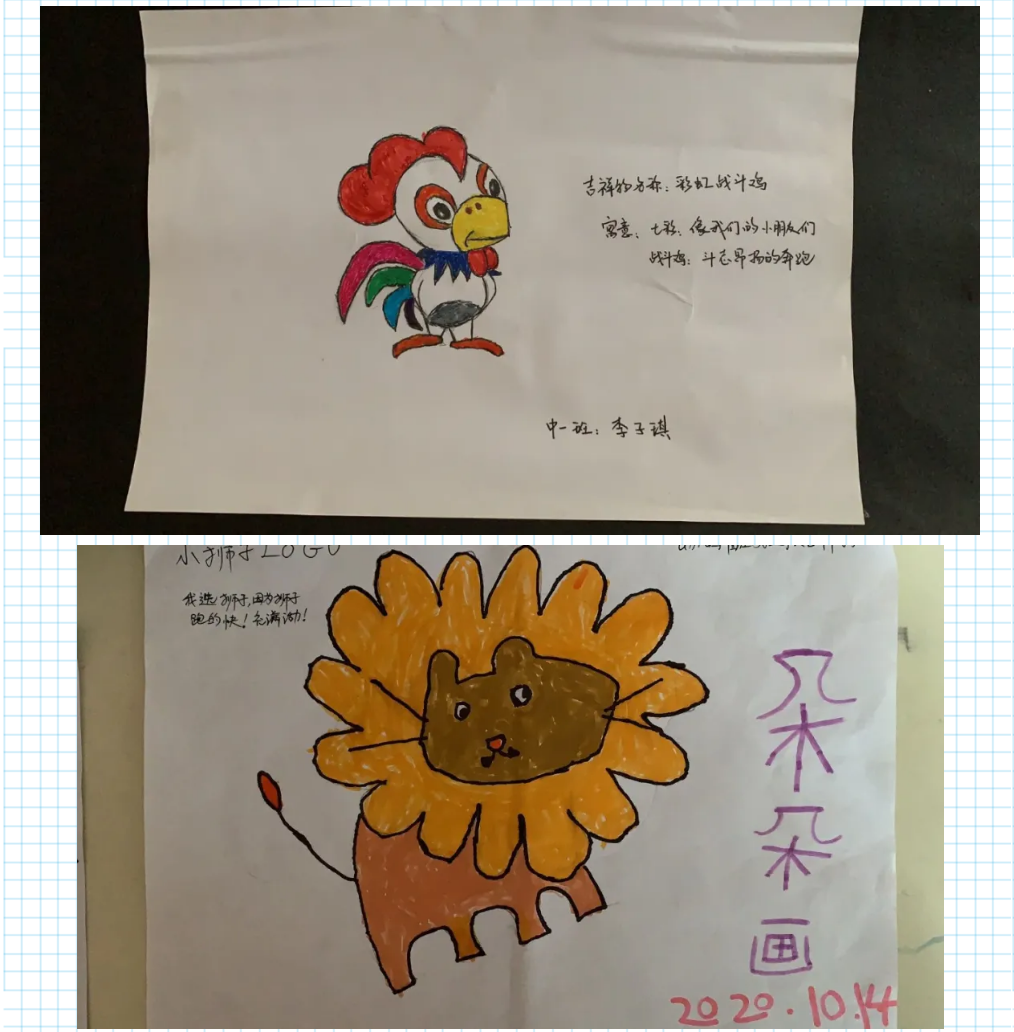 吉祥物名称：彩虹战斗鸡
寓意：七彩：像我们的小朋友们
战斗鸡：斗志昂扬的奔跑
中一班：李子琪
小狮子LOGO
我选狮子,因为狮子
跑的快！充满活力！
朵
朵
画
2020.10.14